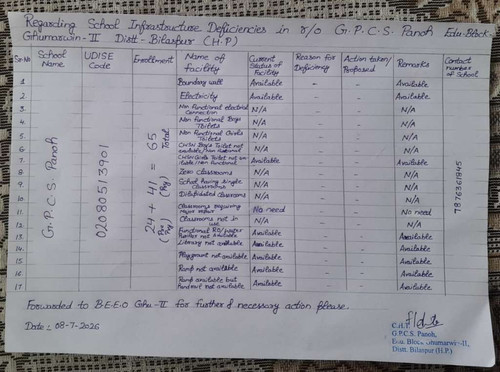 Regarding School Infrastructure Deficiencies in r/o G.P.C.S. Panoh Edu. Block-
Ghumarwin-II Distt-Bilaspur (H.P)
Sr.No School Name UDISE Code Enrollment Name of facility Current Status of Facility Reason for Deficiency Action taken/Proposed Remarks Contact number of School
G.P.C.S. Panoh
02080513901
24 + 41 = 65
(Pre Pry) (Pry) Total
7876361945
1 Boundary wall Available - - Available
2 Electricity Available - - Available
3 Non functional electrical connection N/A - - N/A
4 Non functional Boys Toilets N/A - - N/A
5 Non functional Girls Toilets N/A - - N/A
6 CWSN Boys Toilet not available/Non functional N/A - - N/A
7 CWSN Girls Toilet not available/Non functional Available - - Available
8 Zero classrooms N/A - - N/A
9 School having single classrooms N/A - - N/A
10 Dilapidated classrooms N/A - - N/A
11 Classrooms requiring major repair No need - - No need
12 Classrooms not in use N/A - - N/A
13 Functional RO/water Purifier not available Available - - Available
14 Library not available Available - - Available
15 Playground not available Available - - Available
16 Ramp not available Available - - Available
17 Ramp available but Handrail not available Available - - Available
Forwarded to B.E.E.O Ghu-II for further & necessary action please.
Date: 08-7-2026
C.H.T.
G.P.C.S. Panoh,
Edu. Block Ghumarwin-II,
Distt. Bilaspur (H.P.)